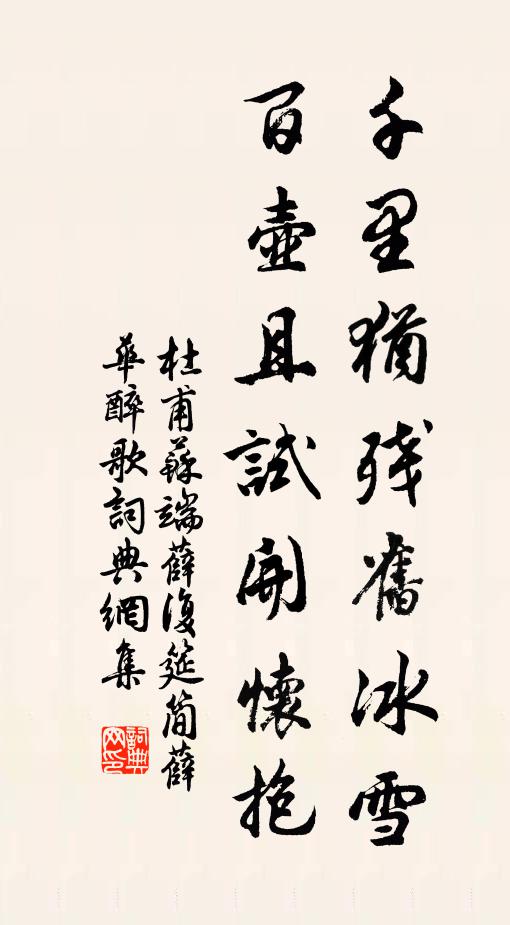 千里猶残舊冰雪
百壺且試開懷抱
杜甫蘇端薛復筵簡薛
華醉歌詞典網集
詞典網印